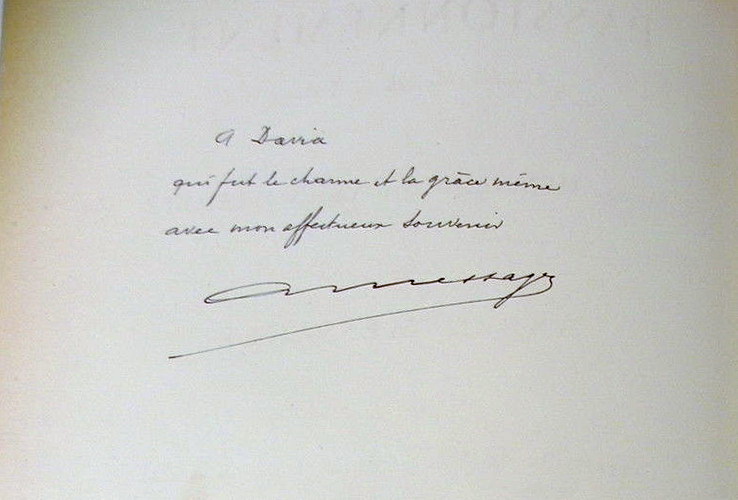 A Davia
qui fut le charme et la grâce même
avec mon affectueux souvenir
A Messager
PASSIONNÉMENT